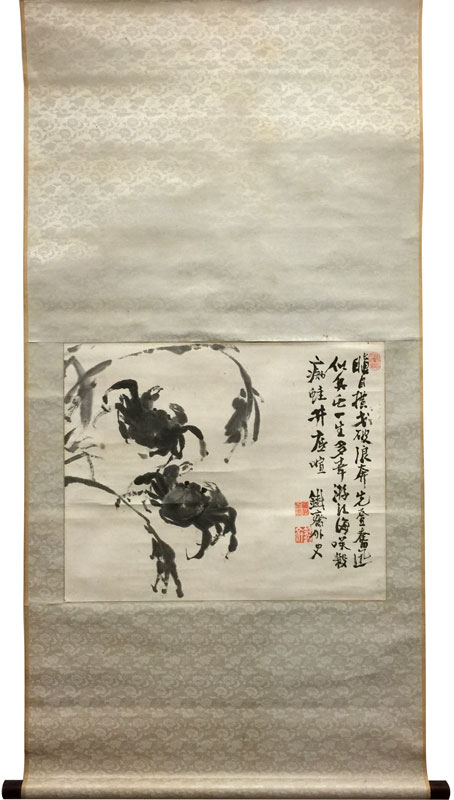 瞋目横戈破浪奔先登奮迅
似兵屯一生多幸游江海咲殺
癡蛙井底喧 鐵齋外史